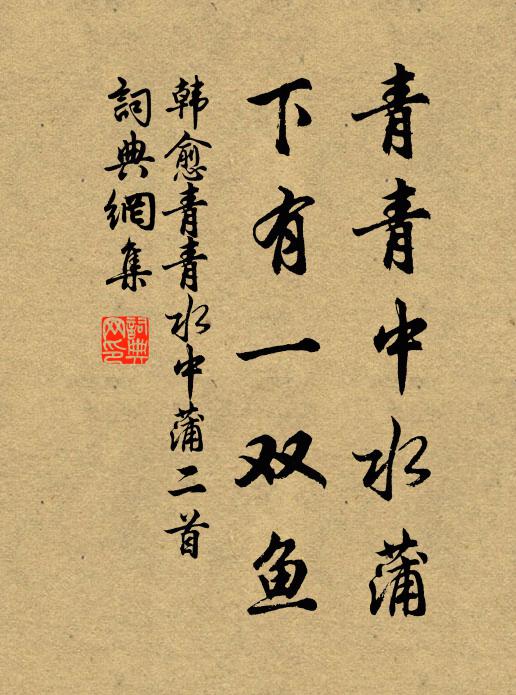 青青中水蒲
下有一双鱼
韩愈青青水中蒲二首
詞典網集
詞典网印